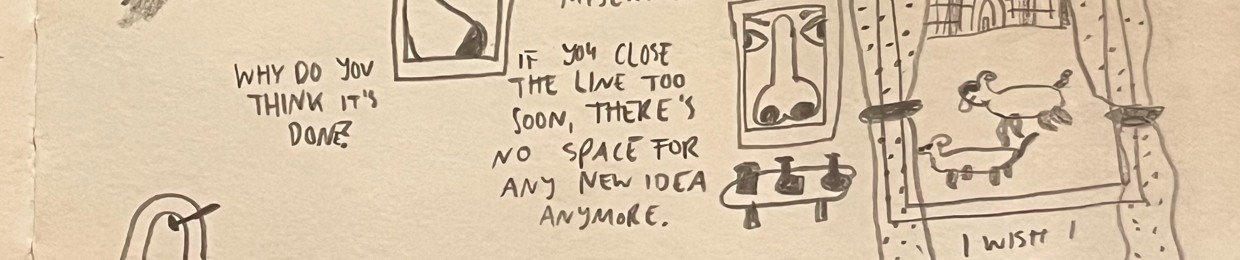 WHY DO YOU
THINK IT'S
DONE?
IF YOU CLOSE
THE LINE TOO
SOON, THERE'S
NO SPACE FOR
ANY NEW IDEA
ANYMORE.
I WISH I